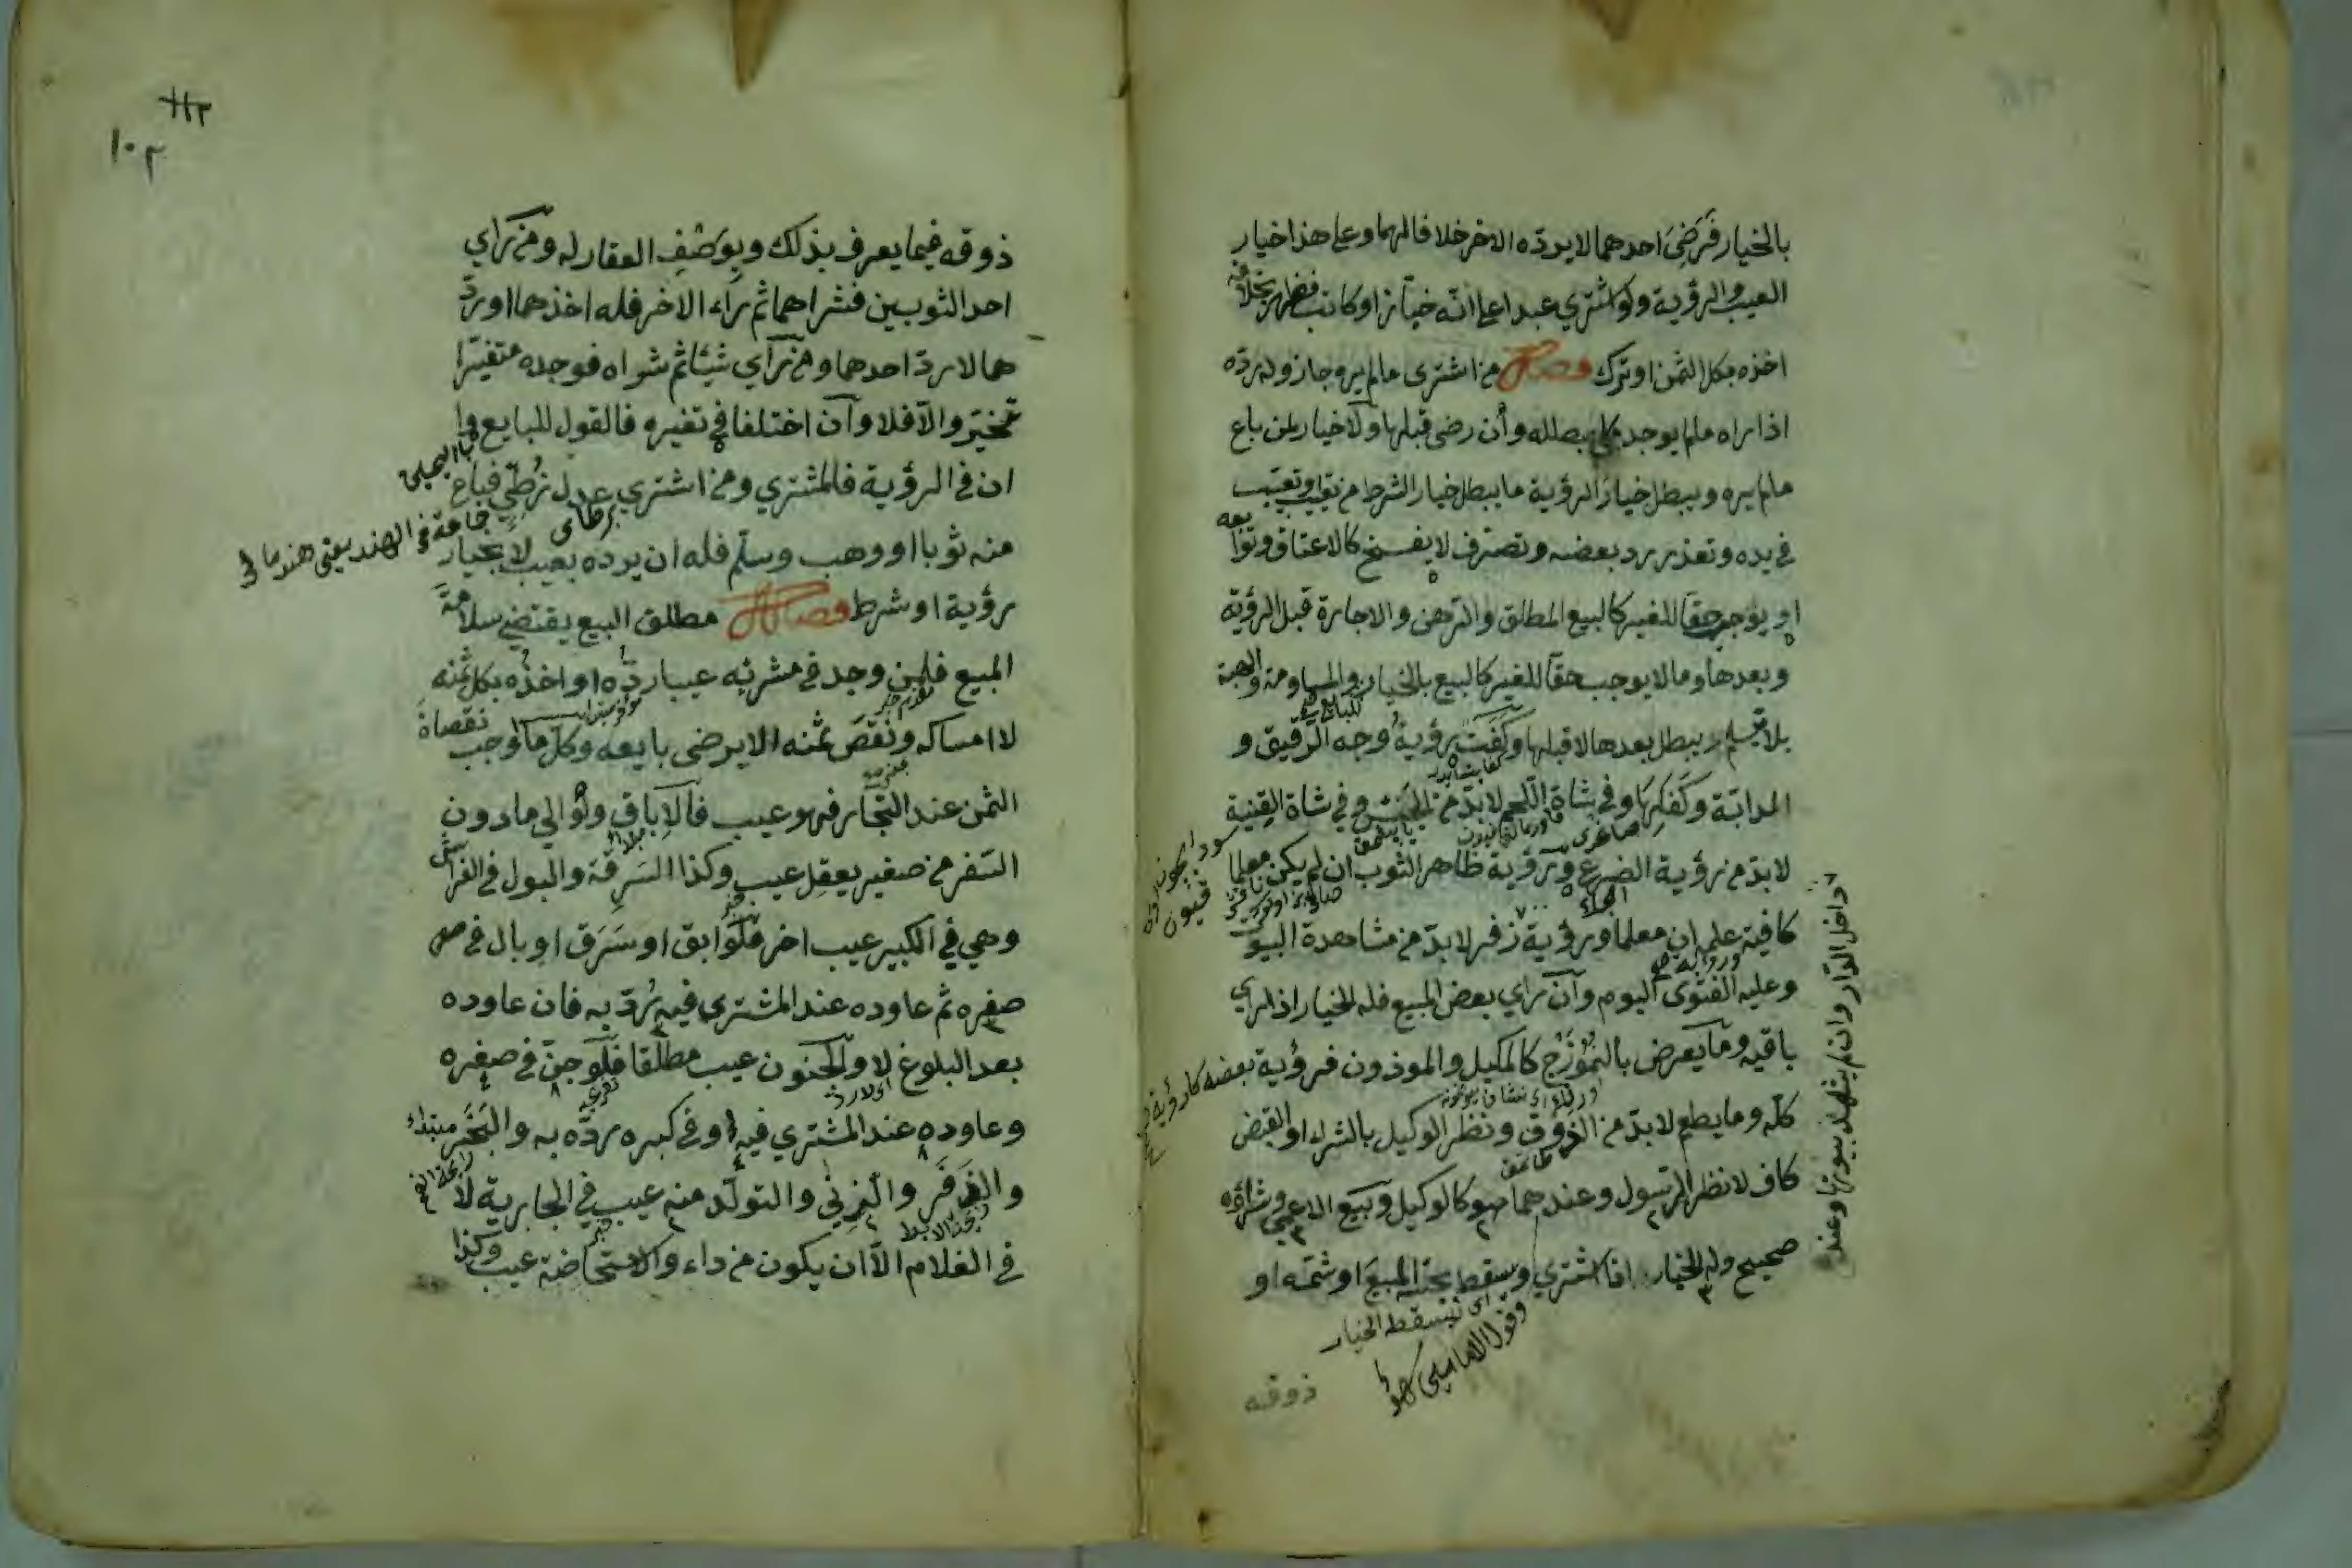 بالخيار فَرَضِيَ احدهما لا يردّه الاخر خلافا لهما وعلى هذا خيار
العيب والرؤية ولو اشتري عبدا على انّه خبّاز او كاتب فظهر بخلافه
اخذه بكل الثمن او ترك فصل من اشترى ما لم يره جاز وله ردّه
اذا راه ما لم يوجد مبطله وأن رضى قبلها ولا خيار لمن باع
ما لم يره ويبطل خيار الرؤية ما يبطل خيار الشرط من تعيب او تعيّب
في يده وتعذر رد بعضه وتصرّف لا يفسخ كالاعتاق وتوابعه
او يوجب حقّا للغير كالبيع المطلق والرهن والاجارة قبل الرؤية
وبعدها وما لا يوجب حقّا للغير كالبيع بالخيار والمساومة والهبة
بلا تسليم يبطل بعدها لا قبلها وكَفَت رؤيةُ وجه الرقيق و
الدابّة وكَفَلِها وفي شاة اللحم لا بدّ من الجَسّ وفي شاة القِنية
لا بدّ من رؤية الضرع ورؤية ظاهر الثوب ان لم يكن معلما
كافية علم ان معلما ورؤية زفر لا بدّ من مشاهدة البيوت
وعليه الفتوى اليوم وآن رأي بعض المبيع فله الخيار اذا رأي
باقيه وما يعرض بالنموزَج كالمكيل والموذون فرؤية بعضه كارؤية
كلّه وما يطعم لا بدّ من الذوق ونظر الوكيل بالشراء او القبض
كاف لا نظر الرسول وعندهما هو كالوكيل وبيع الاعمي وشراؤه
صحيح وله الخيار اذا اشتري ويسقط بجسّه المبيعَ او شمّه او
داخل الدار وان لم يشهد بيوتها وعند
اى تسقط الخيار
ذوقه
١٠٢
ذوقه فيما يعرف بذلك وبِوَصْفِ العقار له ومن رَأي
احد الثوبين فشراهما ثم رَاء الاخر فله اخذهما او ردّ
هما لا ردّ احدهما ومن رَأي شيئا ثم شراه فوجده متغيّرا
تخيّر والّا فلا وآن اختلفا في تغيره فالقول للبايع وا
ان في الرؤية فالمشتري ومن اشتري عدل زُطّي فباع
منه ثوبا او وهب وسلّم فله ان يرده بعيب لا بخيار
رؤية او شرط فصل مطلق البيع يقتضي سلامةَ
المبيع فلمن وجد في مشريّه عيبا ردّه او اخذُه بكل ثمنه
لا امساكه ونقصَ ثمنه الا برضى بايعه وكلّ ما اوجب نقصان
الثمن عند التجّار فهو عيب فآلاِباق ولو الي ما دون
السّفر من صغير يعقِل عيب وكذا السَرِقة والبول في الفراش
وهي في الكبير عيب اخر فلو ابق او سَرَق او بال في
صغره ثم عاوده عند المشتري فيه يُردّ به فان عاوده
بعد البلوغ لا والجنون عيب مطلقا فلو جنّ في صغره
وعاوده عند المشتري فيه او في كبره ردّه به والبَخَر
والذَفَر والزني والتولّد منه عيب في الجارية لا
في الغلام الّا ان يكون من داء والاستحاضة عيب وكذا